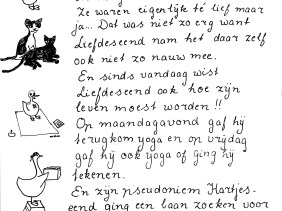 Ze waren eigenlijk té lief maar
ja... Dat was niet zo erg want
Liefdeseend nam het daar zelf
ook niet zo nauw mee.
En sinds vandaag wist
Liefdeseend ook hoe zijn
leven moest worden!!
Op maandagavond gaf hij
terugkom yoga en op vrijdag
gaf hij ook yoga of ging hij
tekenen.
En zijn pseudoniem Hartjes-
eend ging een baan zoeken voor